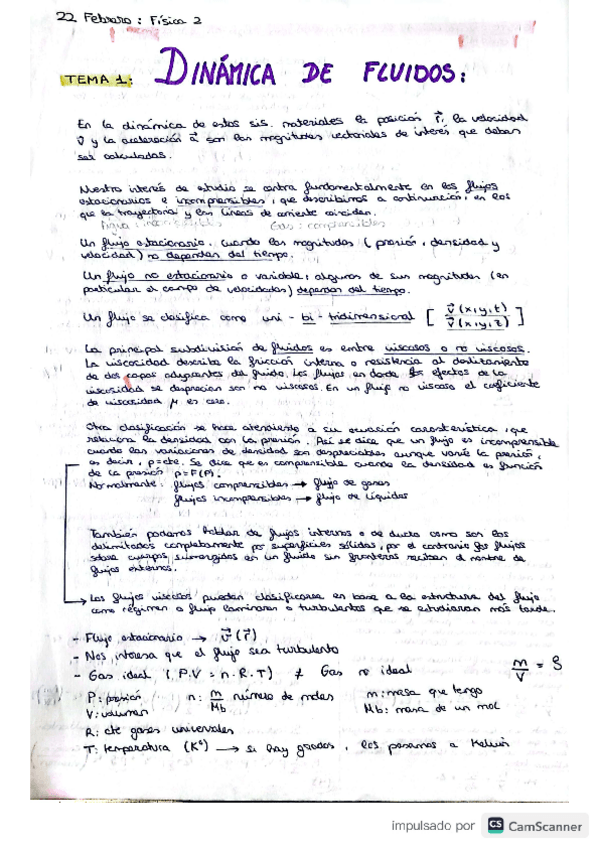 22 Febrero : Física 2
TEMA 1: DINÁMICA DE FLUIDOS:
En la dinámica de estos sis. materiales la posición r⃗, la velocidad
v⃗ y la aceleración a⃗ son las magnitudes vectoriales de interés que deben
ser calculadas.
Nuestro interés de estudio se centra fundamentalmente en los flujos
estacionarios e incomprensibles, que describimos a continuación, en los
que la trayectoria y las líneas de corriente coinciden.
Gas: comprensibles
Un flujo estacionario, cuando las magnitudes (presión, densidad y
velocidad) no dependen del tiempo.
Un flujo no estacionario o variable, algunas de sus magnitudes (en
particular el campo de velocidades) dependen del tiempo.
Un flujo se clasifica como uni - bi - tridimensional [ v⃗ (x,y,t)
v⃗ (x,y,z) ]
La principal subdivisión de fluidos es entre viscosos o no viscosos.
La viscosidad describe la fricción interna o resistencia al deslizamiento
de dos capas adyacentes del fluido. Los flujos en donde los efectos de la
viscosidad se desprecian son no viscosos. En un flujo no viscoso el coeficiente
de viscosidad μ es cero.
Otra clasificación se hace atendiendo a su ecuación característica, que
relaciona la densidad con la presión. Así se dice que un flujo es incomprensible
cuando las variaciones de densidad son despreciables aunque varíe la presión,
es decir, ρ=cte. Se dice que es comprensible cuando la densidad es función
de la presión ρ=F(P).
Normalmente: flujos comprensibles → flujo de gases
flujos incomprensibles → flujo de líquidos
También podemos hablar de flujos internos o de ducto como son los
delimitados completamente por superficies sólidas, por el contrario los flujos
sobre cuerpos sumergidos en un fluido sin fronteras reciben el nombre de
flujos externos.
→ Los flujos viscosos pueden clasificarse en base a la estructura del flujo
como régimen o flujo laminares o turbulentos que se estudiaran más tarde.
- Flujo estacionario → v⃗ (r⃗)
- Nos interesa que el flujo sea turbulento
- Gas ideal (P.V = n.R.T) ≠ Gas no ideal
m/V = ρ
P: presión n: m/Mb número de moles m: masa que tengo
V: volumen Mb: masa de un mol
R: cte gases universales
T: temperatura (Kº) → si hay grados, los pasamos a Kelvin
impulsado por CS CamScanner